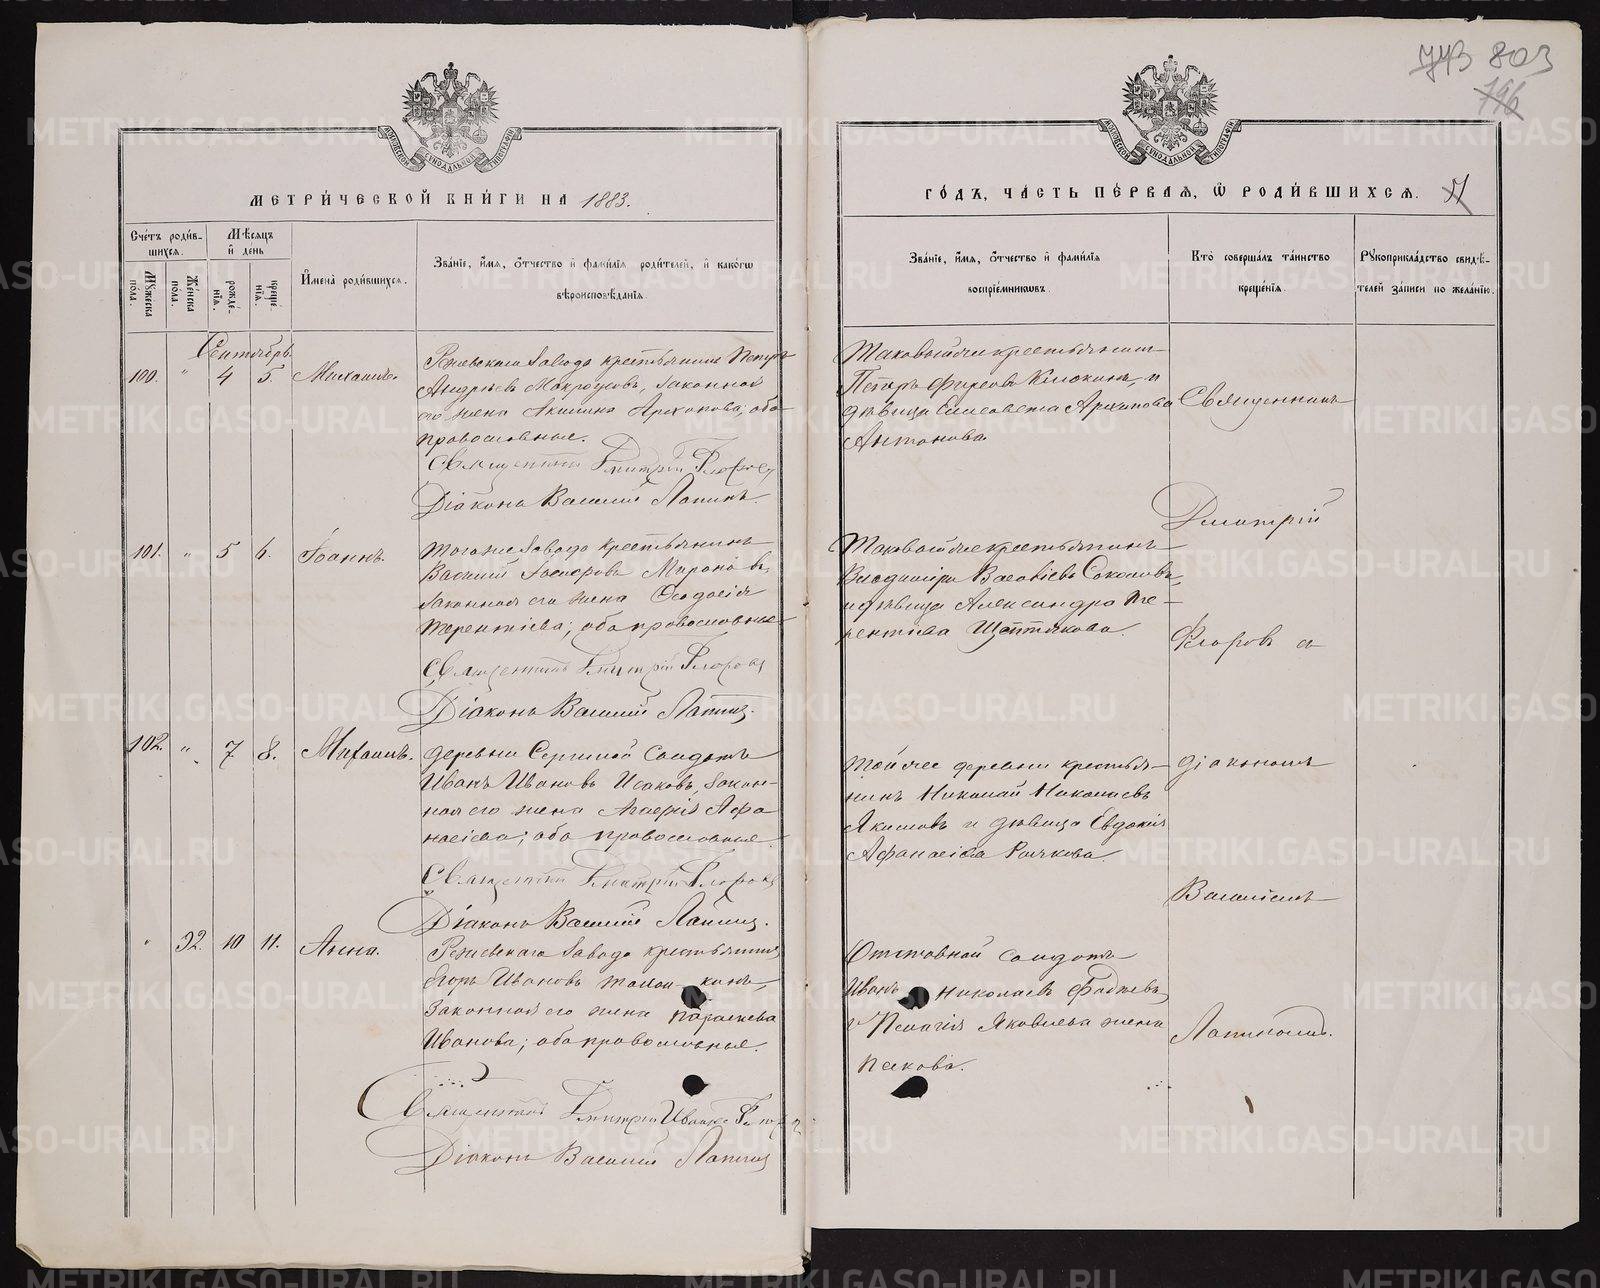 743 803
796
МОСКОВСКОЙ СѴНОДАЛЬНОЙ ТИПОГРАФІИ
МЕТРИ́ЧЕСКОЙ КНИ́ГИ НА 1883.
Сче́тъ роди́в-
шихсѧ.
Му́жеска пола.
Же́нска пола.
Мѣ́сѧцъ и҆ день
рожде́-нїѧ.
креще́-нїѧ.
И҆мена̀ роди́вшихсѧ.
Зва́нїе, и҆́мѧ, ѻ҆́тчество и҆ фами́лїѧ роди́телей, и҆ како́гѡ
вѣроисповѣ́данїѧ.
Сентябрь.
100. " 4 5. Михаилъ.
Режевскаго завода крестьянинъ Петръ
Андреевъ Мокроусовъ, законная
его жена Акилина Архипова; оба
православные.
Священникъ Димитрій Флоровъ
Діаконъ Василий Лапинъ.
101. " 5 6. Іоаннъ.
Тогоже завода крестьянинъ
Василий Мироновъ,
законная его жена Феодосія
Терентіева; оба православные
Священникъ Димитрій Флоровъ
Діаконъ Василий Лапинъ.
102. " 7 8. Михаилъ.
деревни Солдатъ
Иванъ Ивановъ Исаковъ, закон-
ная его жена Агаѳія Афа
насіева; оба православные
Священникъ Димитрій Флоровъ
Діаконъ Василий Лапинъ.
" 92. 10 11. Анна.
Режевскаго завода крестьянинъ
Егоръ Ивановъ
Законная его жена Параскева
Иванова; оба православные.
Священникъ Димитрій Флоровъ
Діаконъ Василий Лапинъ
МОСКОВСКОЙ СѴНОДАЛЬНОЙ ТИПОГРАФІИ
ГО́ДЪ, ЧА́СТЬ ПЕ́РВАѦ, Ѡ҆ РОДИ́ВШИХСѦ. 51
Зва́нїе, и҆́мѧ, ѻ҆́тчество и҆ фами́лїѧ
воспрїе́мникѡвъ.
Кто̀ соверша́лъ та́инство
креще́нїѧ.
Рꙋкоприкла́дство свидѣ́-
телей за́писи по жела́нїю.
Таковойже крестьянинъ
Петръ Фирсовъ Клюкинъ, и
дѣвица Елисавета Архипова
Антонова.
Таковойже крестьянинъ
Владимиръ Соколовъ,
и дѣвица Александра Те-
рентіева
Тойже деревни крестья-
нинъ Николай Николаевъ
Якимовъ и дѣвица Евдокія
Афанасіева Рычкова
Отставной солдатъ
Иванъ Николаевъ Фадѣевъ,
и Пелагія Яковлева жена
Пескова.
Священникъ
Димитрій
Флоровъ съ
діакономъ
Василіемъ
Лапинымъ.
METRIKI.GASO-URAL.RU